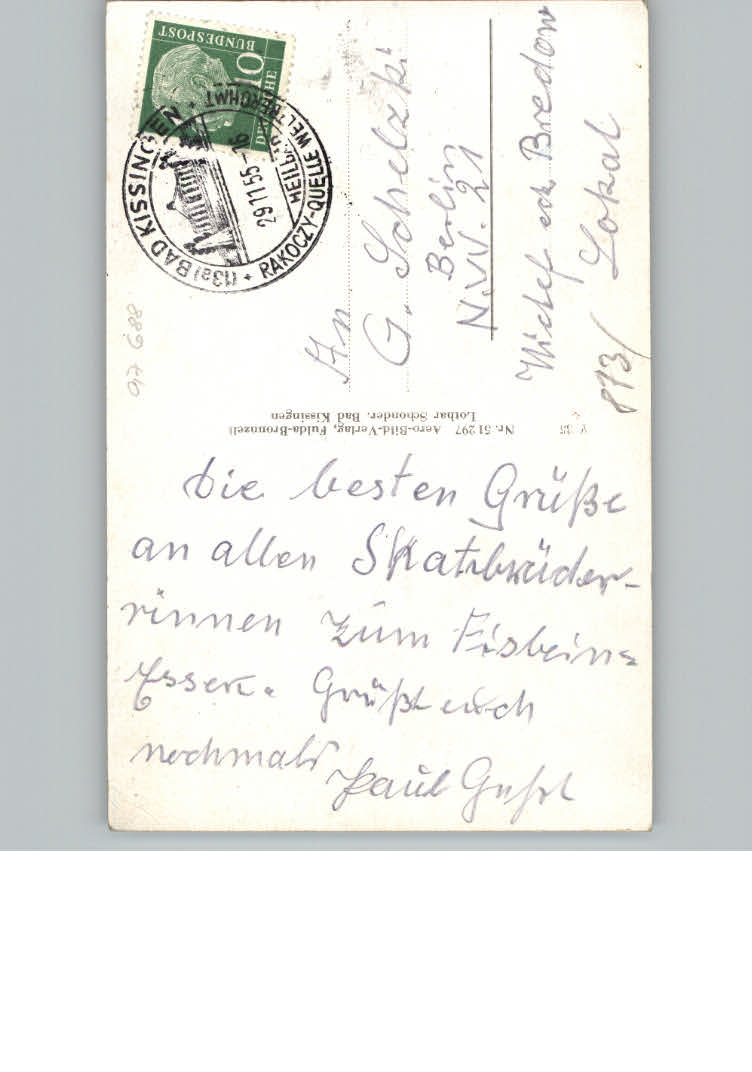 Die besten Grüße
an allen Skatbrüder-
rinnen zum Eisbein=
Essen. Grüßt euch
nochmals Paul
An
G. Schelzki
Berlin
N.W. 21
Bredow
Lokal
873/
DEUTSCHE
BUNDESPOST
10
(13a) BAD KISSINGEN
RAKOCZY-QUELLE WELTBERÜHMT
29.11.55
Nr. 51297 Aero-Bild-Verlag, Fulda-Bronnzell
Lothar Schonder, Bad Kissingen
97 688